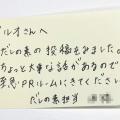 ゲルオさんへ
だしの素の投稿をみました。
ちょっと大事な話があるので
至急・PRルームにきてください
だしの素担当